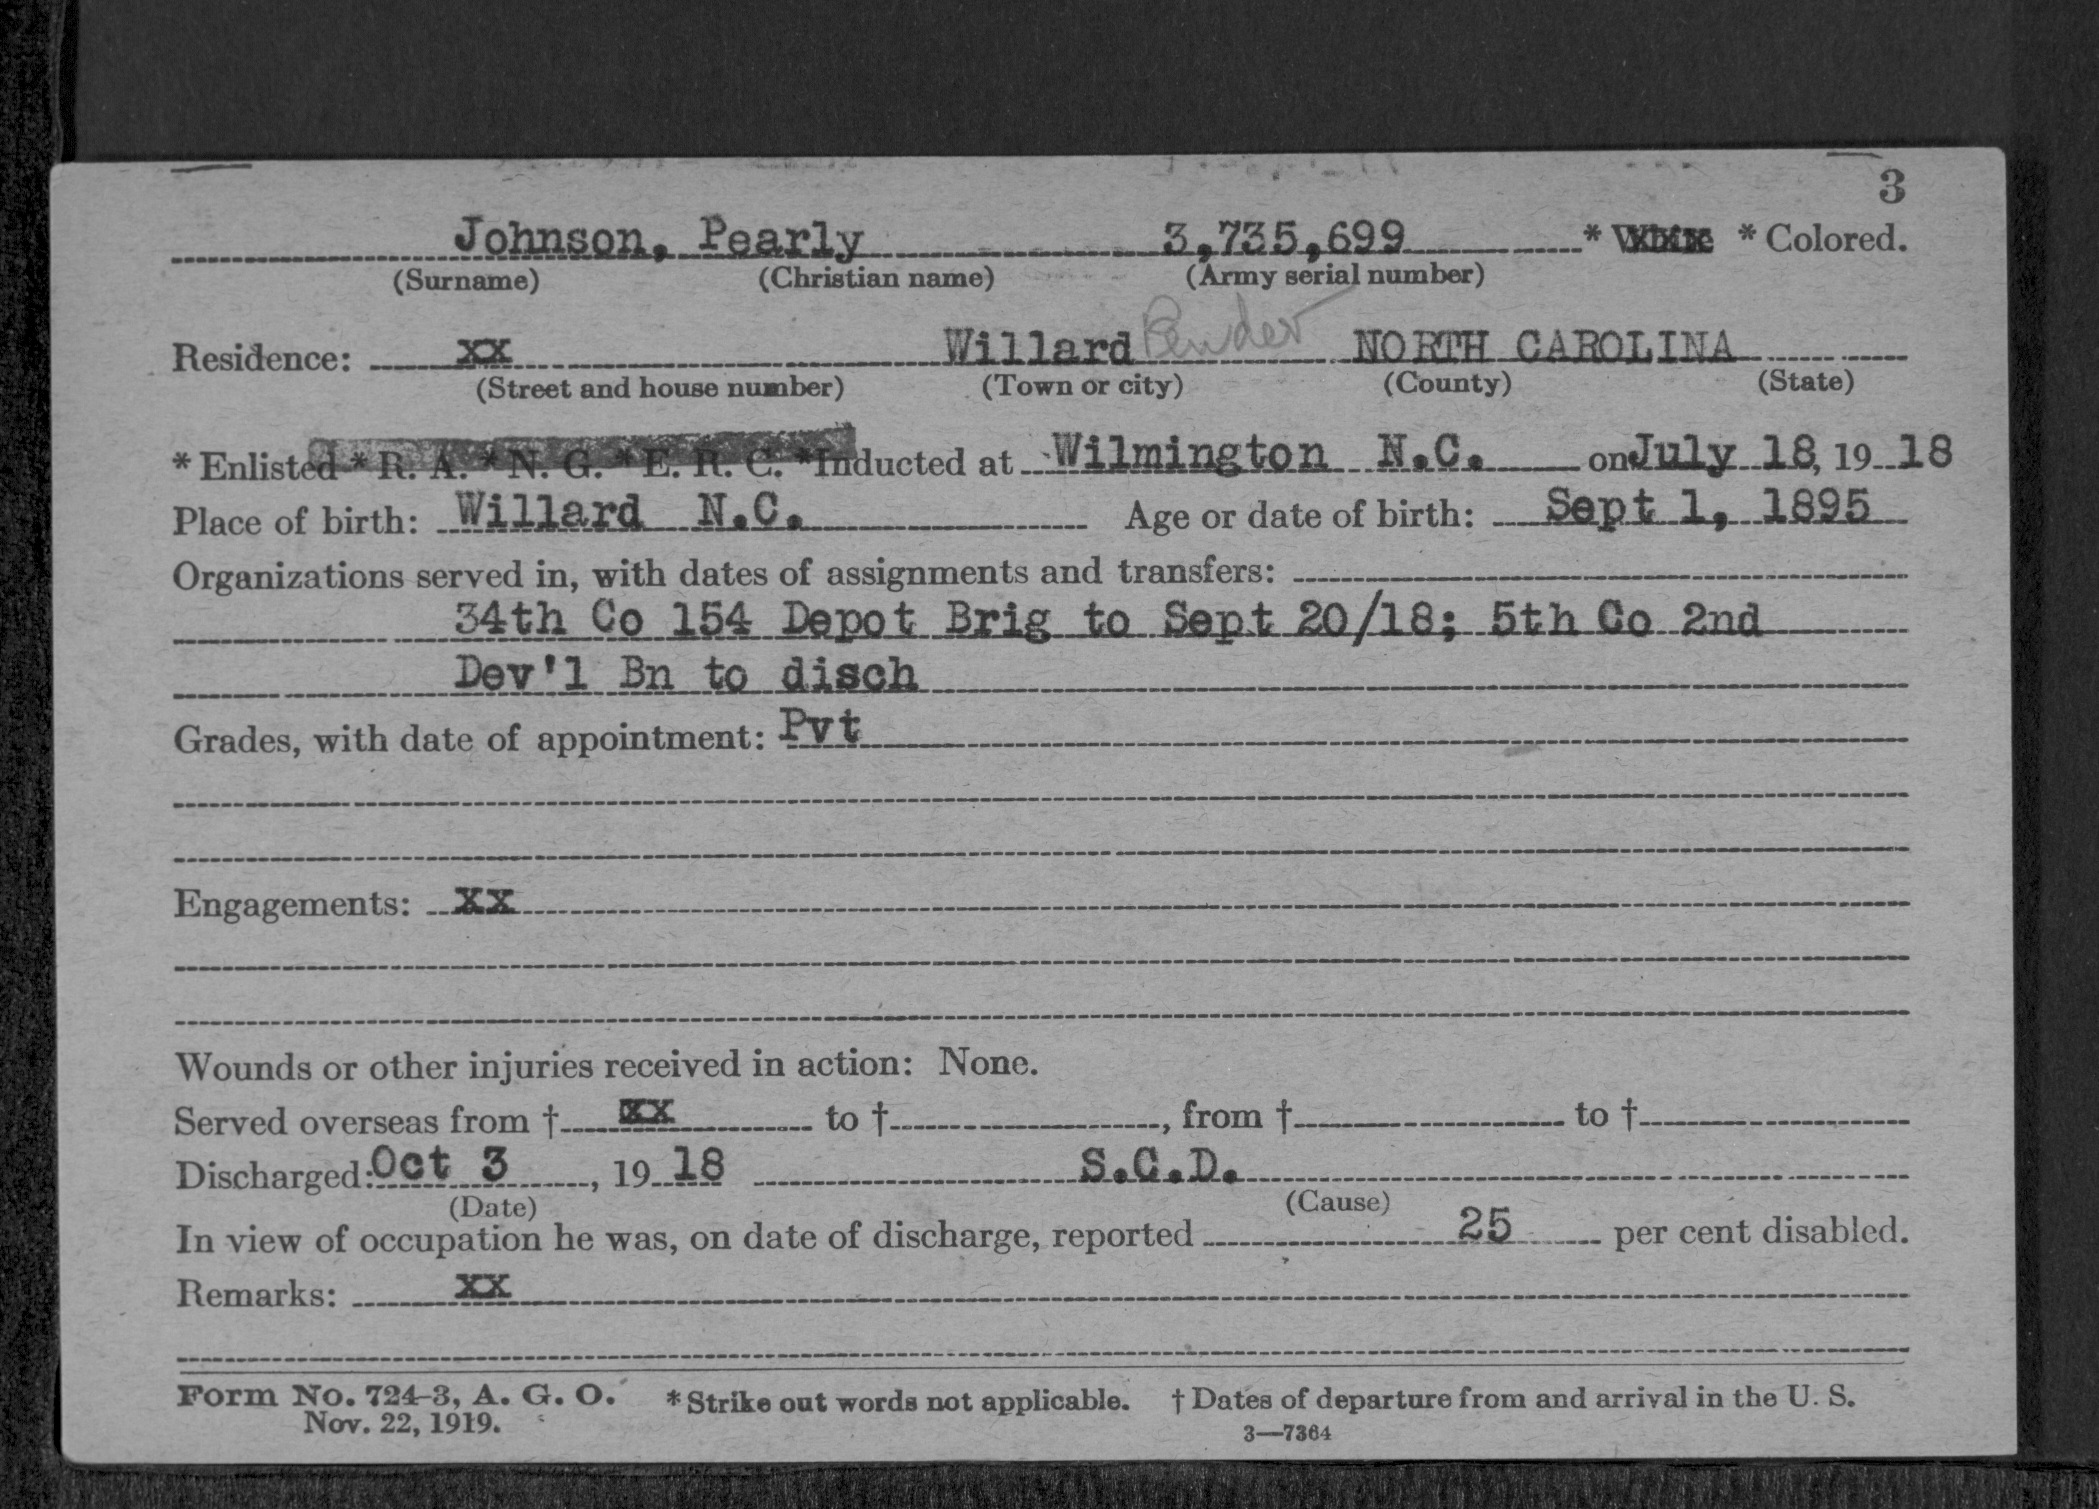 3
Johnson, Pearly 3,735,699 * White * Colored.
(Surname) (Christian name) (Army serial number)
Residence: xx Willard Pender NORTH CAROLINA
(Street and house number) (Town or city) (County) (State)
* Enlisted * R. A. * N. G. * E. R. C. *Inducted at Wilmington N.C. on July 18, 19 18
Place of birth: Willard N.C. Age or date of birth: Sept 1, 1895
Organizations served in, with dates of assignments and transfers:
34th Co 154 Depot Brig to Sept 20/18; 5th Co 2nd
Dev'l Bn to disch
Grades, with date of appointment: Pvt
Engagements: xx
Wounds or other injuries received in action: None.
Served overseas from † xx to †, from † to †
Discharged: Oct 3, 19 18 S.C.D.
(Date) (Cause)
In view of occupation he was, on date of discharge, reported 25 per cent disabled.
Remarks: xx
Form No. 724-3, A. G. O. * Strike out words not applicable. † Dates of departure from and arrival in the U. S.
Nov. 22, 1919. 3—7364